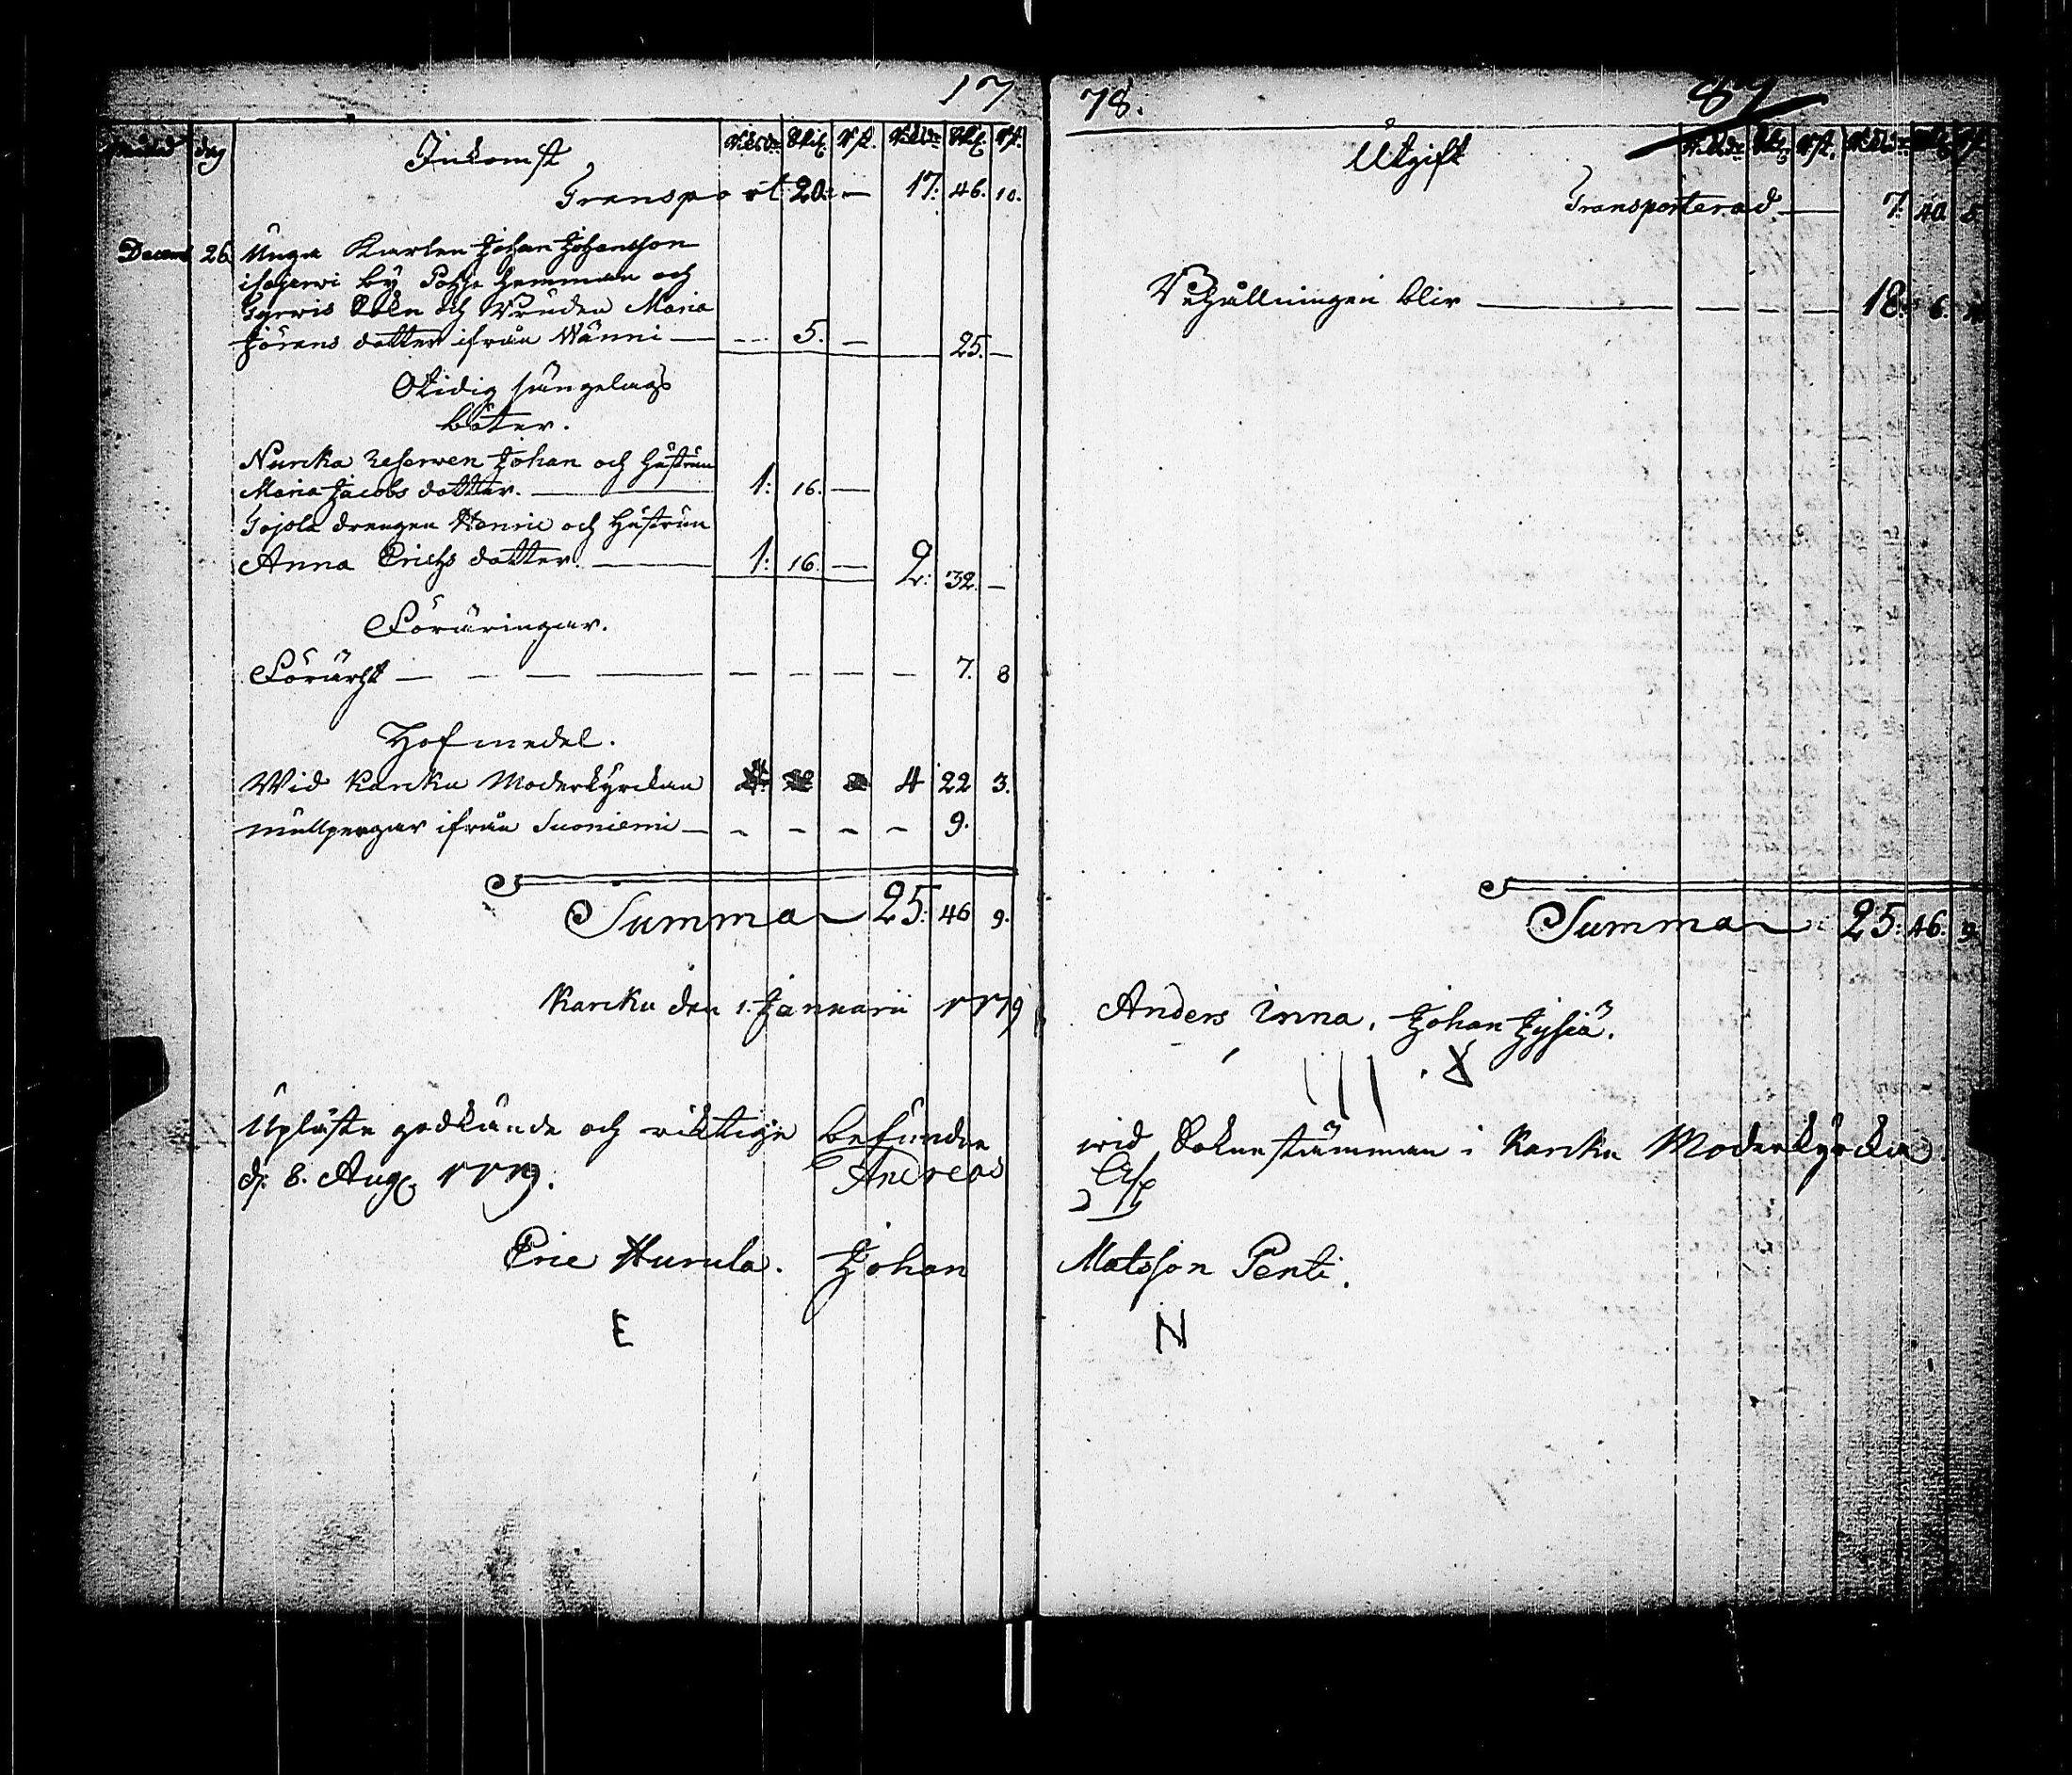 17
Månad dag Inkomst Riksdr Skil. rst. Riksdr Skil. rst.
Transport 20: — 17: 46. 10.
Decemb 26. Unga Karlen Johan Johansson
by hemman och
Sokn och Bruden Maria
Jörans dotter ifrån Nänni — 5. — 25. —
Otidig sängelags
böter.
Nunka Johan och hustrun
Maria Jacobs dotter. 1: 16. —
Gojola drengen Henric och Hustrun
Anna Erichs dotter 1: 16. — 2: 32. —
Föräringar.
Förärht — 7. 8
Hofmedel.
Wid Karcku Moderkyrckan 4 22 3.
mullpengar ifrån Suoniemi — 9.
Summa 25: 46 9.
Karcku den 1. Januarii 1779
Upläste godkände och riktige befundne
d. 8. Aug. 1779. Andreas
Eric Hurula. Johan
E
78. 87
Utgift Riksdr Skil. rst. Riksdr
Transporterad. — 7. 40 5
Behållningen blir — 18. 6. 4
Summa 25: 46. 9.
Anders Inna. Johan Jysiä.
III
wid Sokne stämman i Karcku Moderkyrcka.
Matsson Penti.
N